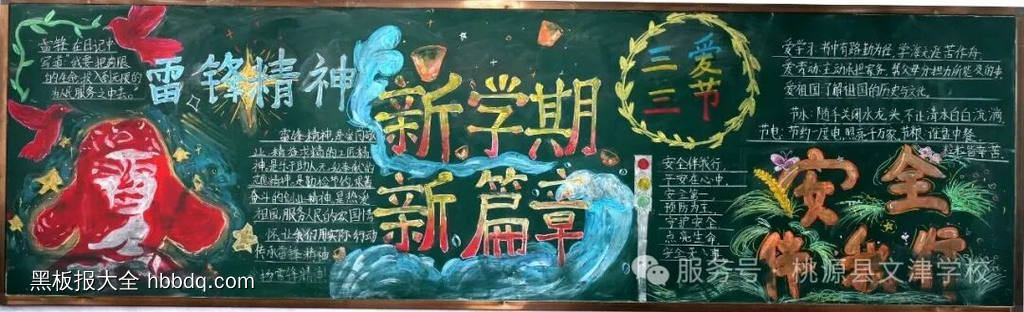 雷锋在日记中
写道:"我要把有限
的生命,投入到无限的
为人民服务之中去。"
雷锋精神
神是乐于助人
奋斗的创业精神,是热爱
祖国,服务人民的爱国情
怀,让我们用实际行动
传承雷锋精神
新学期
新篇章
三爱
三节
安全伴我行
平安在心中
安全第一
预防为主
守护安全
点亮生命
爱学习:书中有路勤为径 学海无涯苦作舟
爱劳动:主动承担家务,替父母分担力所能及的事
爱祖国:了解祖国的历史与文化
节水:随手关闭水龙头,不让清水白白流淌
节电:节约一度电,照亮千万家 节粮:谁知盘中餐
粒粒皆辛苦
安全
伴我行
黑板报大全 hbbdq.com
服务号·桃源县文津学校